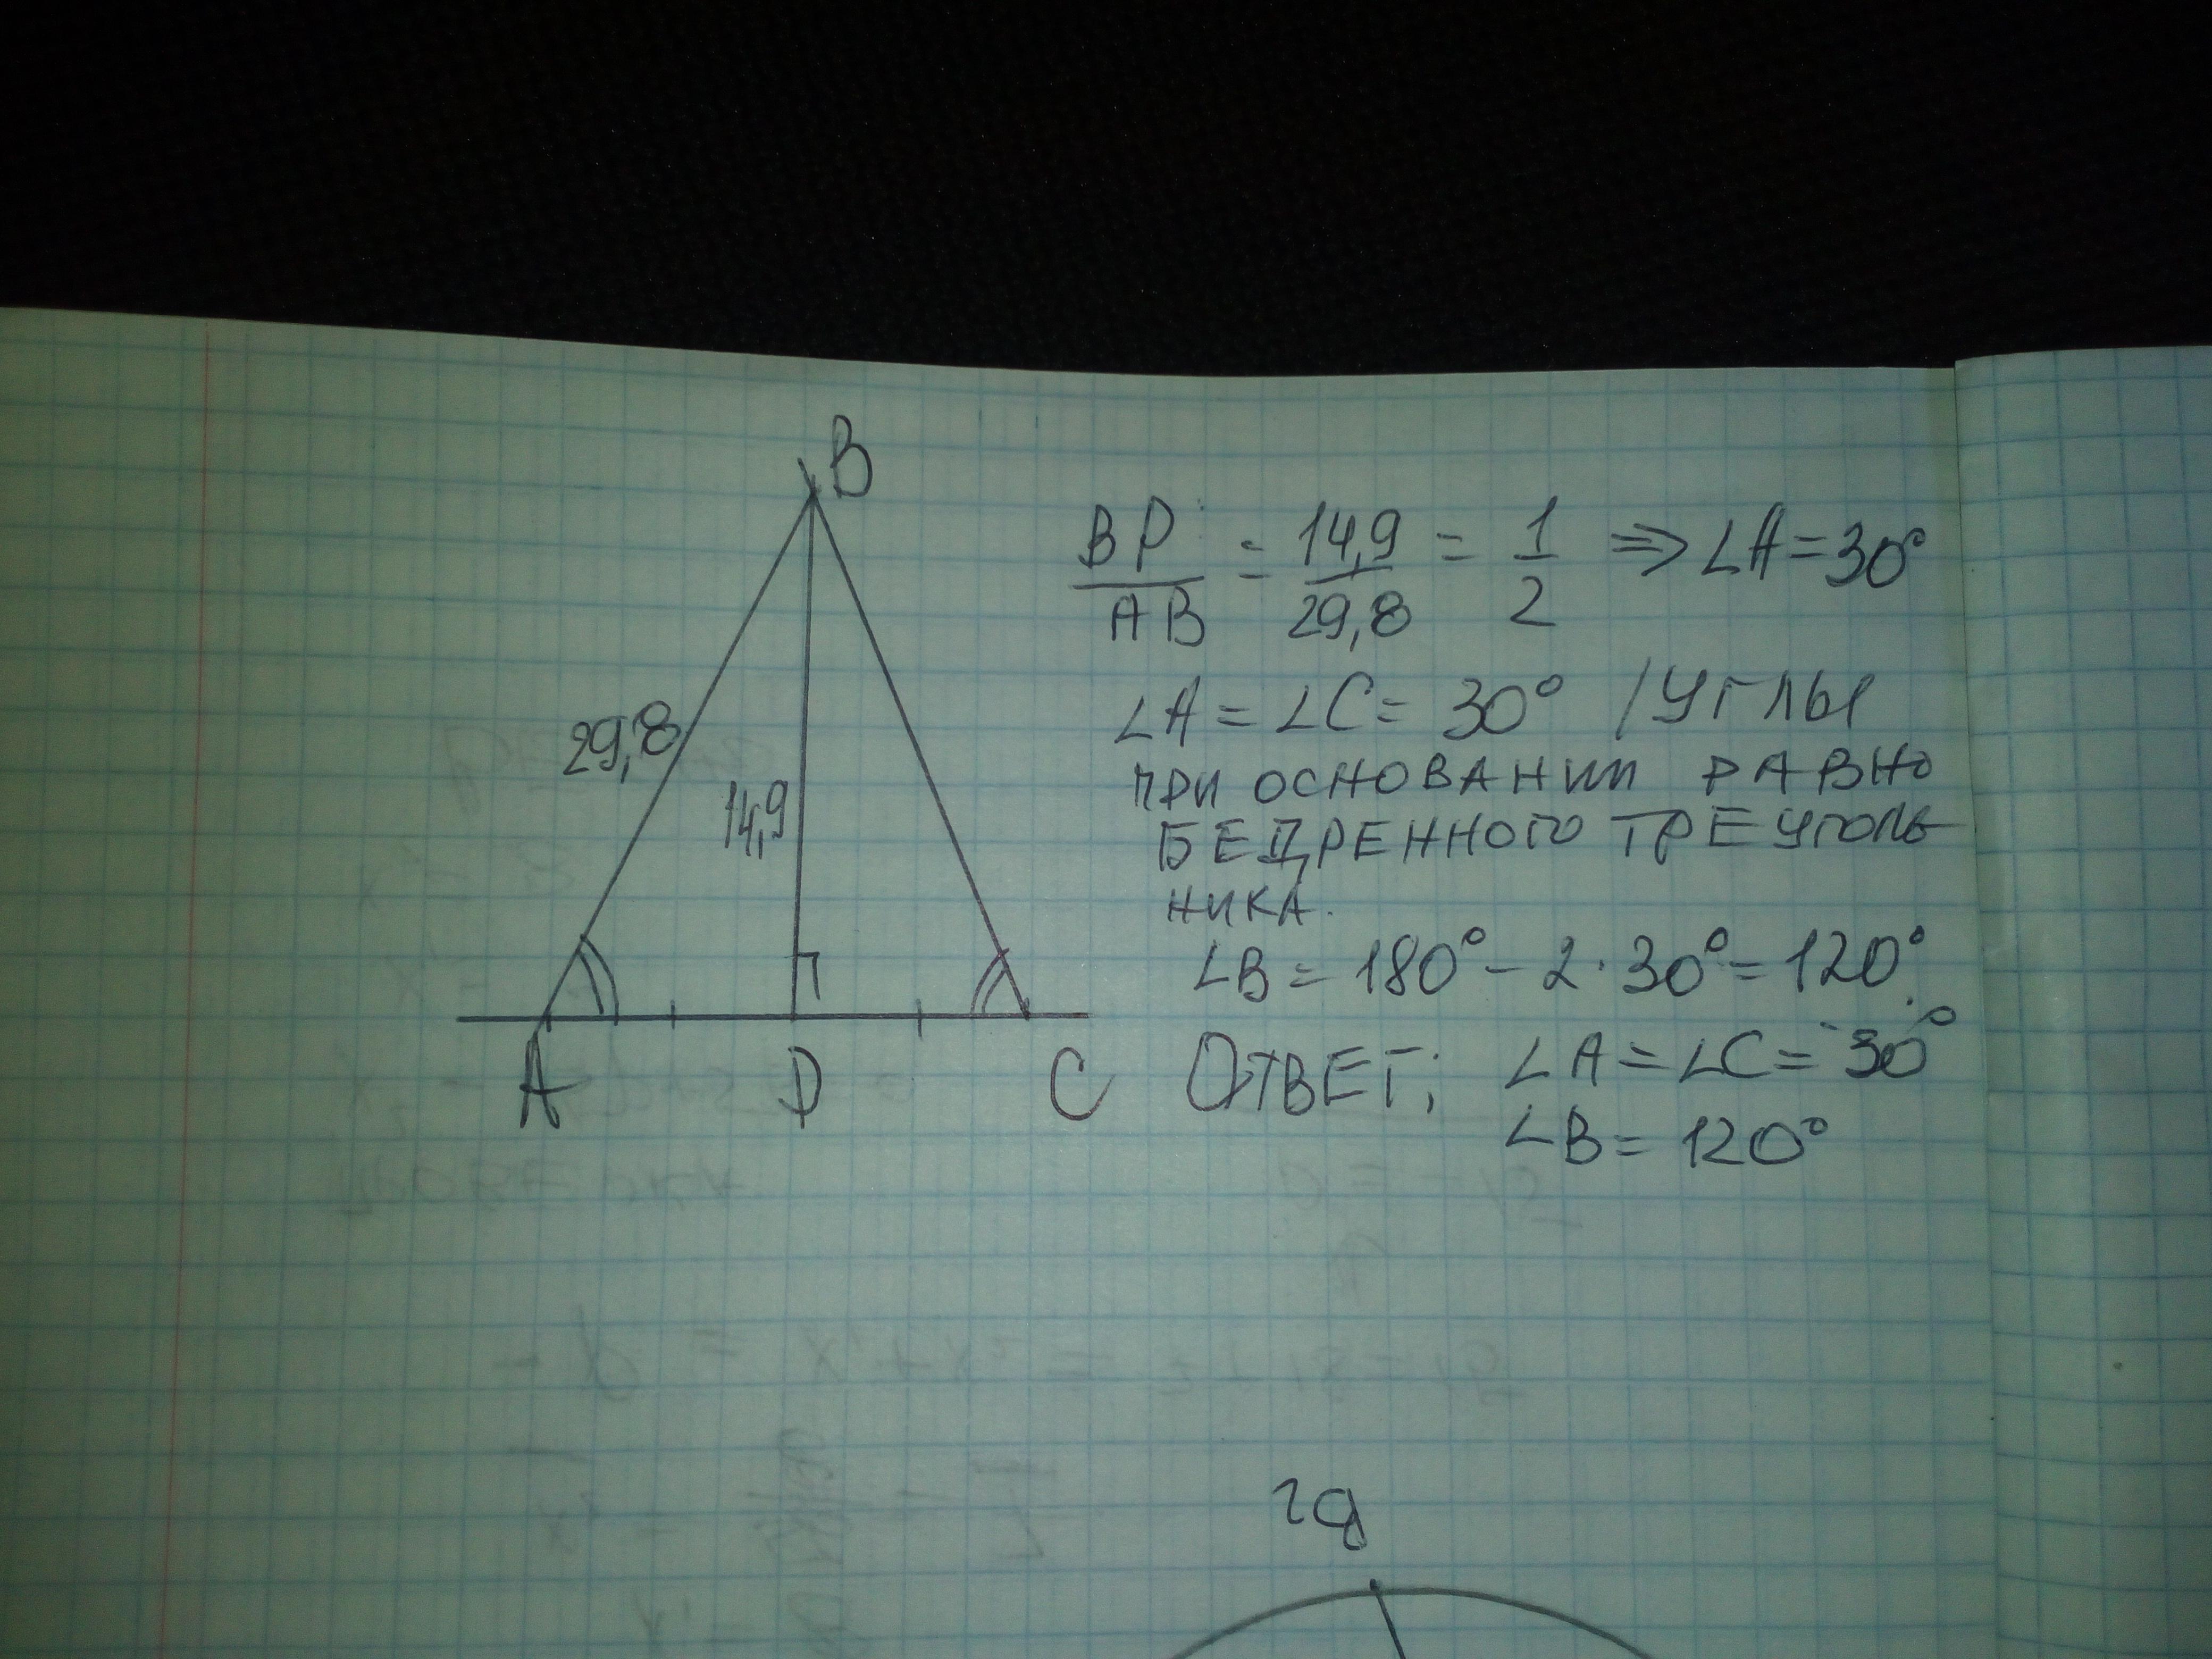 B
29,8
14,9
A D C
BD/AB = 14,9/29,8 = 1/2 ⇒ ∠A=30°
∠A = ∠C = 30° /УГЛЫ
ПРИ ОСНОВАНИИ РАВНО
БЕДРЕННОГО ТРЕУГОЛЬ
НИКА.
∠B = 180° - 2·30° = 120°.
ОТВЕТ: ∠A = ∠C = 30°
∠B = 120°